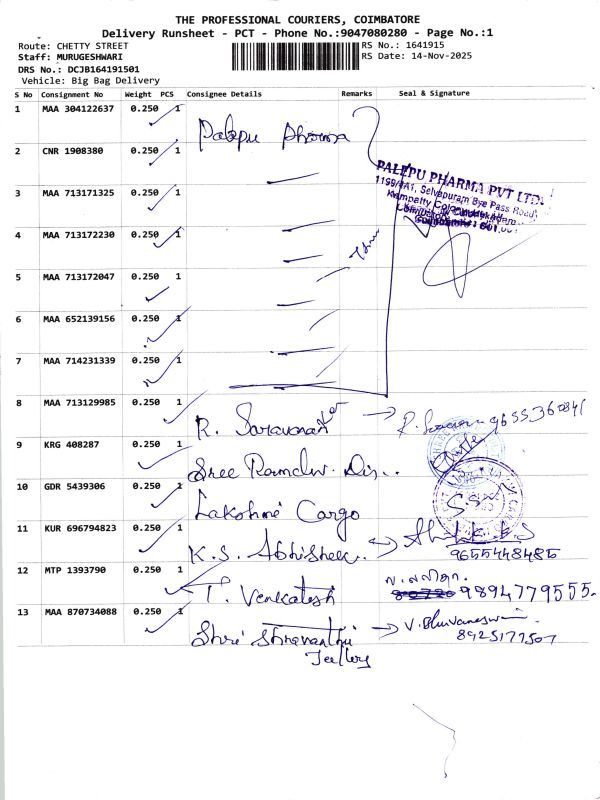 THE PROFESSIONAL COURIERS, COIMBATORE
Delivery Runsheet - PCT - Phone No.:9047080280 - Page No.:1
Route: CHETTY STREET RS No.: 1641915
Staff: MURUGESHWARI RS Date: 14-Nov-2025
DRS No.: DCJB164191501
Vehicle: Big Bag Delivery
S No Consignment No Weight PCS Consignee Details Remarks Seal & Signature
1 MAA 304122637 0.250 1 Palepu Pharma
2 CNR 1908380 0.250 1
PALEPU PHARMA PVT LTD
Selvapuram Bye Pass Road
3 MAA 713171325 0.250 1
4 MAA 713172230 0.250 1
5 MAA 713172047 0.250 1
6 MAA 652139156 0.250 1
7 MAA 714231339 0.250 1
8 MAA 713129985 0.250 1 R. Saravanan
9 KRG 408287 0.250 1 Sree
10 GDR 5439306 0.250 1 Lakshmi Cargo
11 KUR 696794823 0.250 1 K.S. Abhishek
9655448485
12 MTP 1393790 0.250 1 T. Venkatesh 9894779555
13 MAA 870734088 0.250 1 Shri Shravanthi V. Bhuvaneswari
8925177507